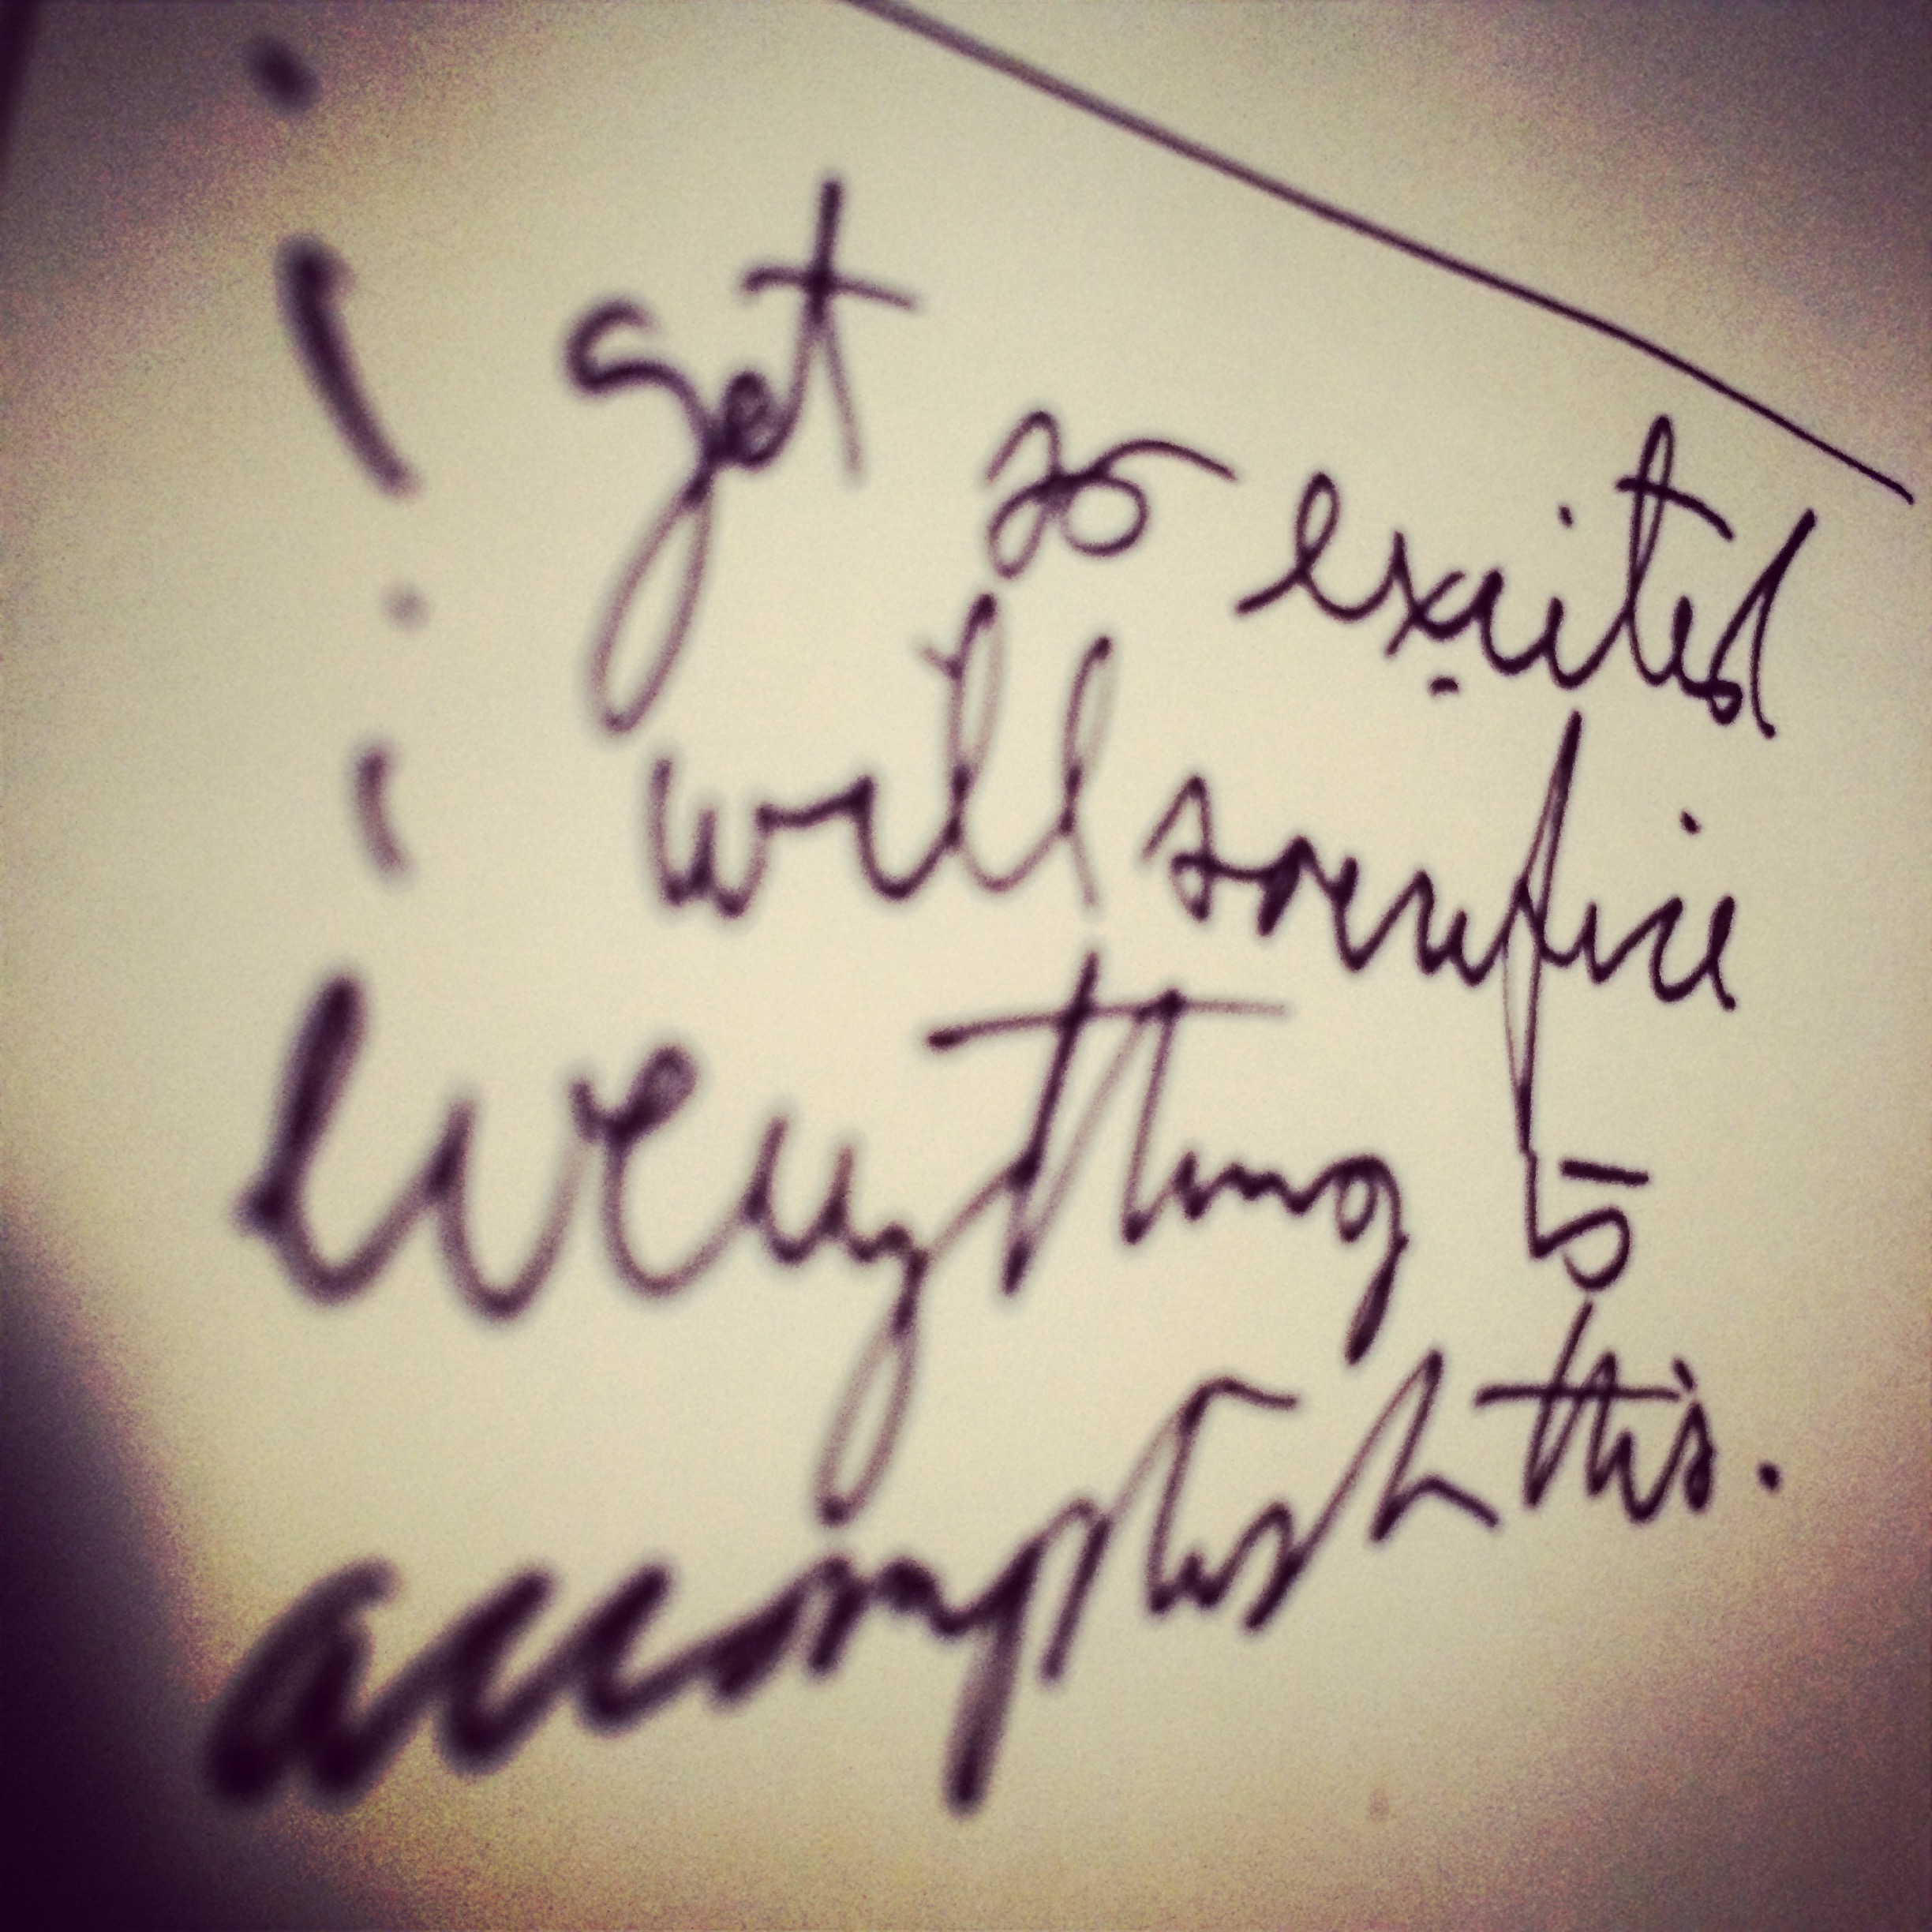 i get so excited
i will sacrifice
everything to
accomplish this.